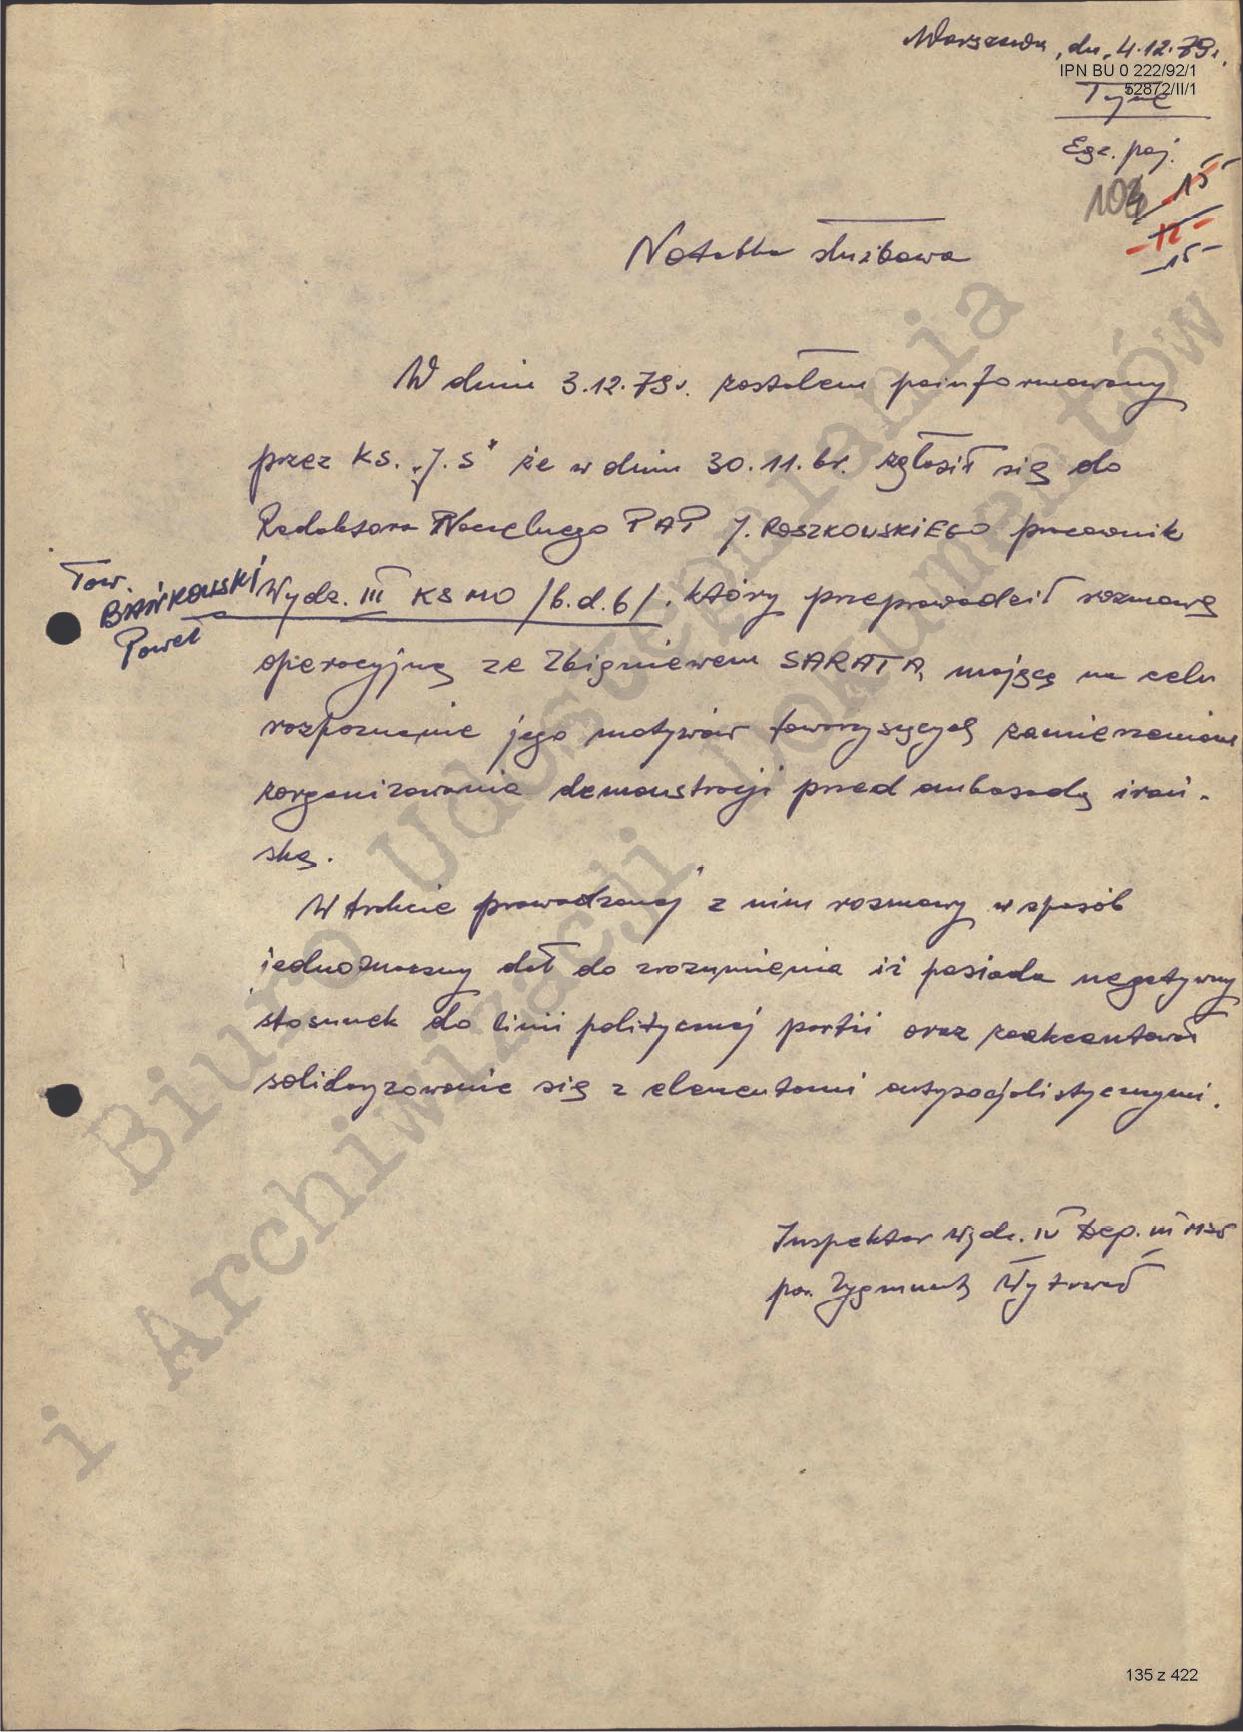 Warszawa, dn. 4.12.79r.
IPN BU 0 222/92/1
52872/II/1
Tajne
Egz. poj.
103
15
12
15
Notatka służbowa
W dniu 3.12.79r. zostałem poinformowany
przez KS. „J. S" że w dniu 30.11. br. zgłosił się do
Redaktora Naczelnego PAP J. ROSZKOWSKIEGO pracownik
Tow.
BIAŃKOWSKI
Paweł
Wydz. III KSMO /b.d.b/. który przeprowadził rozmowę
operacyjną ze Zbigniewem SARATĄ, mającą na celu
rozpoznanie jego motywów towarzyszących zamierzeniom
zorganizowania demonstracji przed ambasadą irań-
ską.
W trakcie prowadzonej z nim rozmowy w sposób
jednoznaczny dał do zrozumienia iż posiada negatywny
stosunek do linii politycznej partii oraz zaakcentował
solidaryzowanie się z elementami antysocjalistycznymi.
Inspektor Wydz. IV Dep. III MSW
por. Zygmunt
Biuro Udostępniania
i Archiwizacji Dokumentów
135 z 422